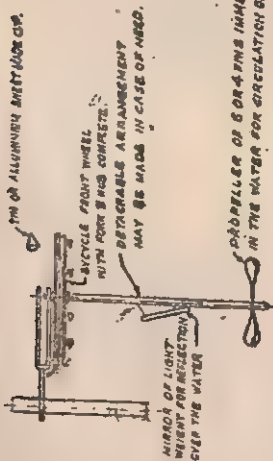 TIN OR ALLUMINIUM SHEET MADE CUP.
BYCYCLE FRONT WHEEL
WITH FORK & HUB COMPLETE.
DETACHABLE ARANGEMENT
MAY BE MADE IN CASE OF NEED.
MIRROR OF LIGHT
WEIGHT FOR REFLECTION
OVER THE WATER
PROPELLER OF 6 OR 4 FINS
IN THE WATER FOR CIRCULATION